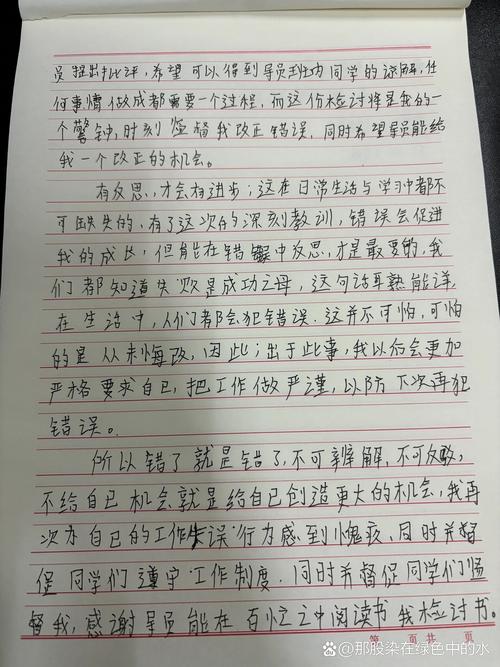 员提出批评,希望可以得到导员班内同学的谅解,任
何事情做成都需要一个过程,而这份检讨将是我的一
个警钟,时刻监督我改正错误,同时希望导员能给
我一个改正的机会。
有反思,才会有进步;这在日常生活与学习中都不
可缺失的,有了这次的深刻教训,错误会促进
我的成长,但能在错误中反思,才是最要的,我
们都知道失败是成功之母,这句话耳熟能详,
在生活中,人们都会犯错误.这并不可怕,可怕
的是从未悔改,因此;出于此事,我以后会更加
严格要求自己,把工作做严谨,以防下次再犯
错误。
所以错了就是错了,不可辩解,不可反驳,
不给自己机会就是给自己创造更大的机会,我再
次为自己的工作失误行为感到愧疚,同时并督
促同学们遵守工作制度.同时并督促同学们监
督我,感谢导员能在百忙之中阅读书我检讨书。
第 页共 页
知乎 @那股染在绿色中的水